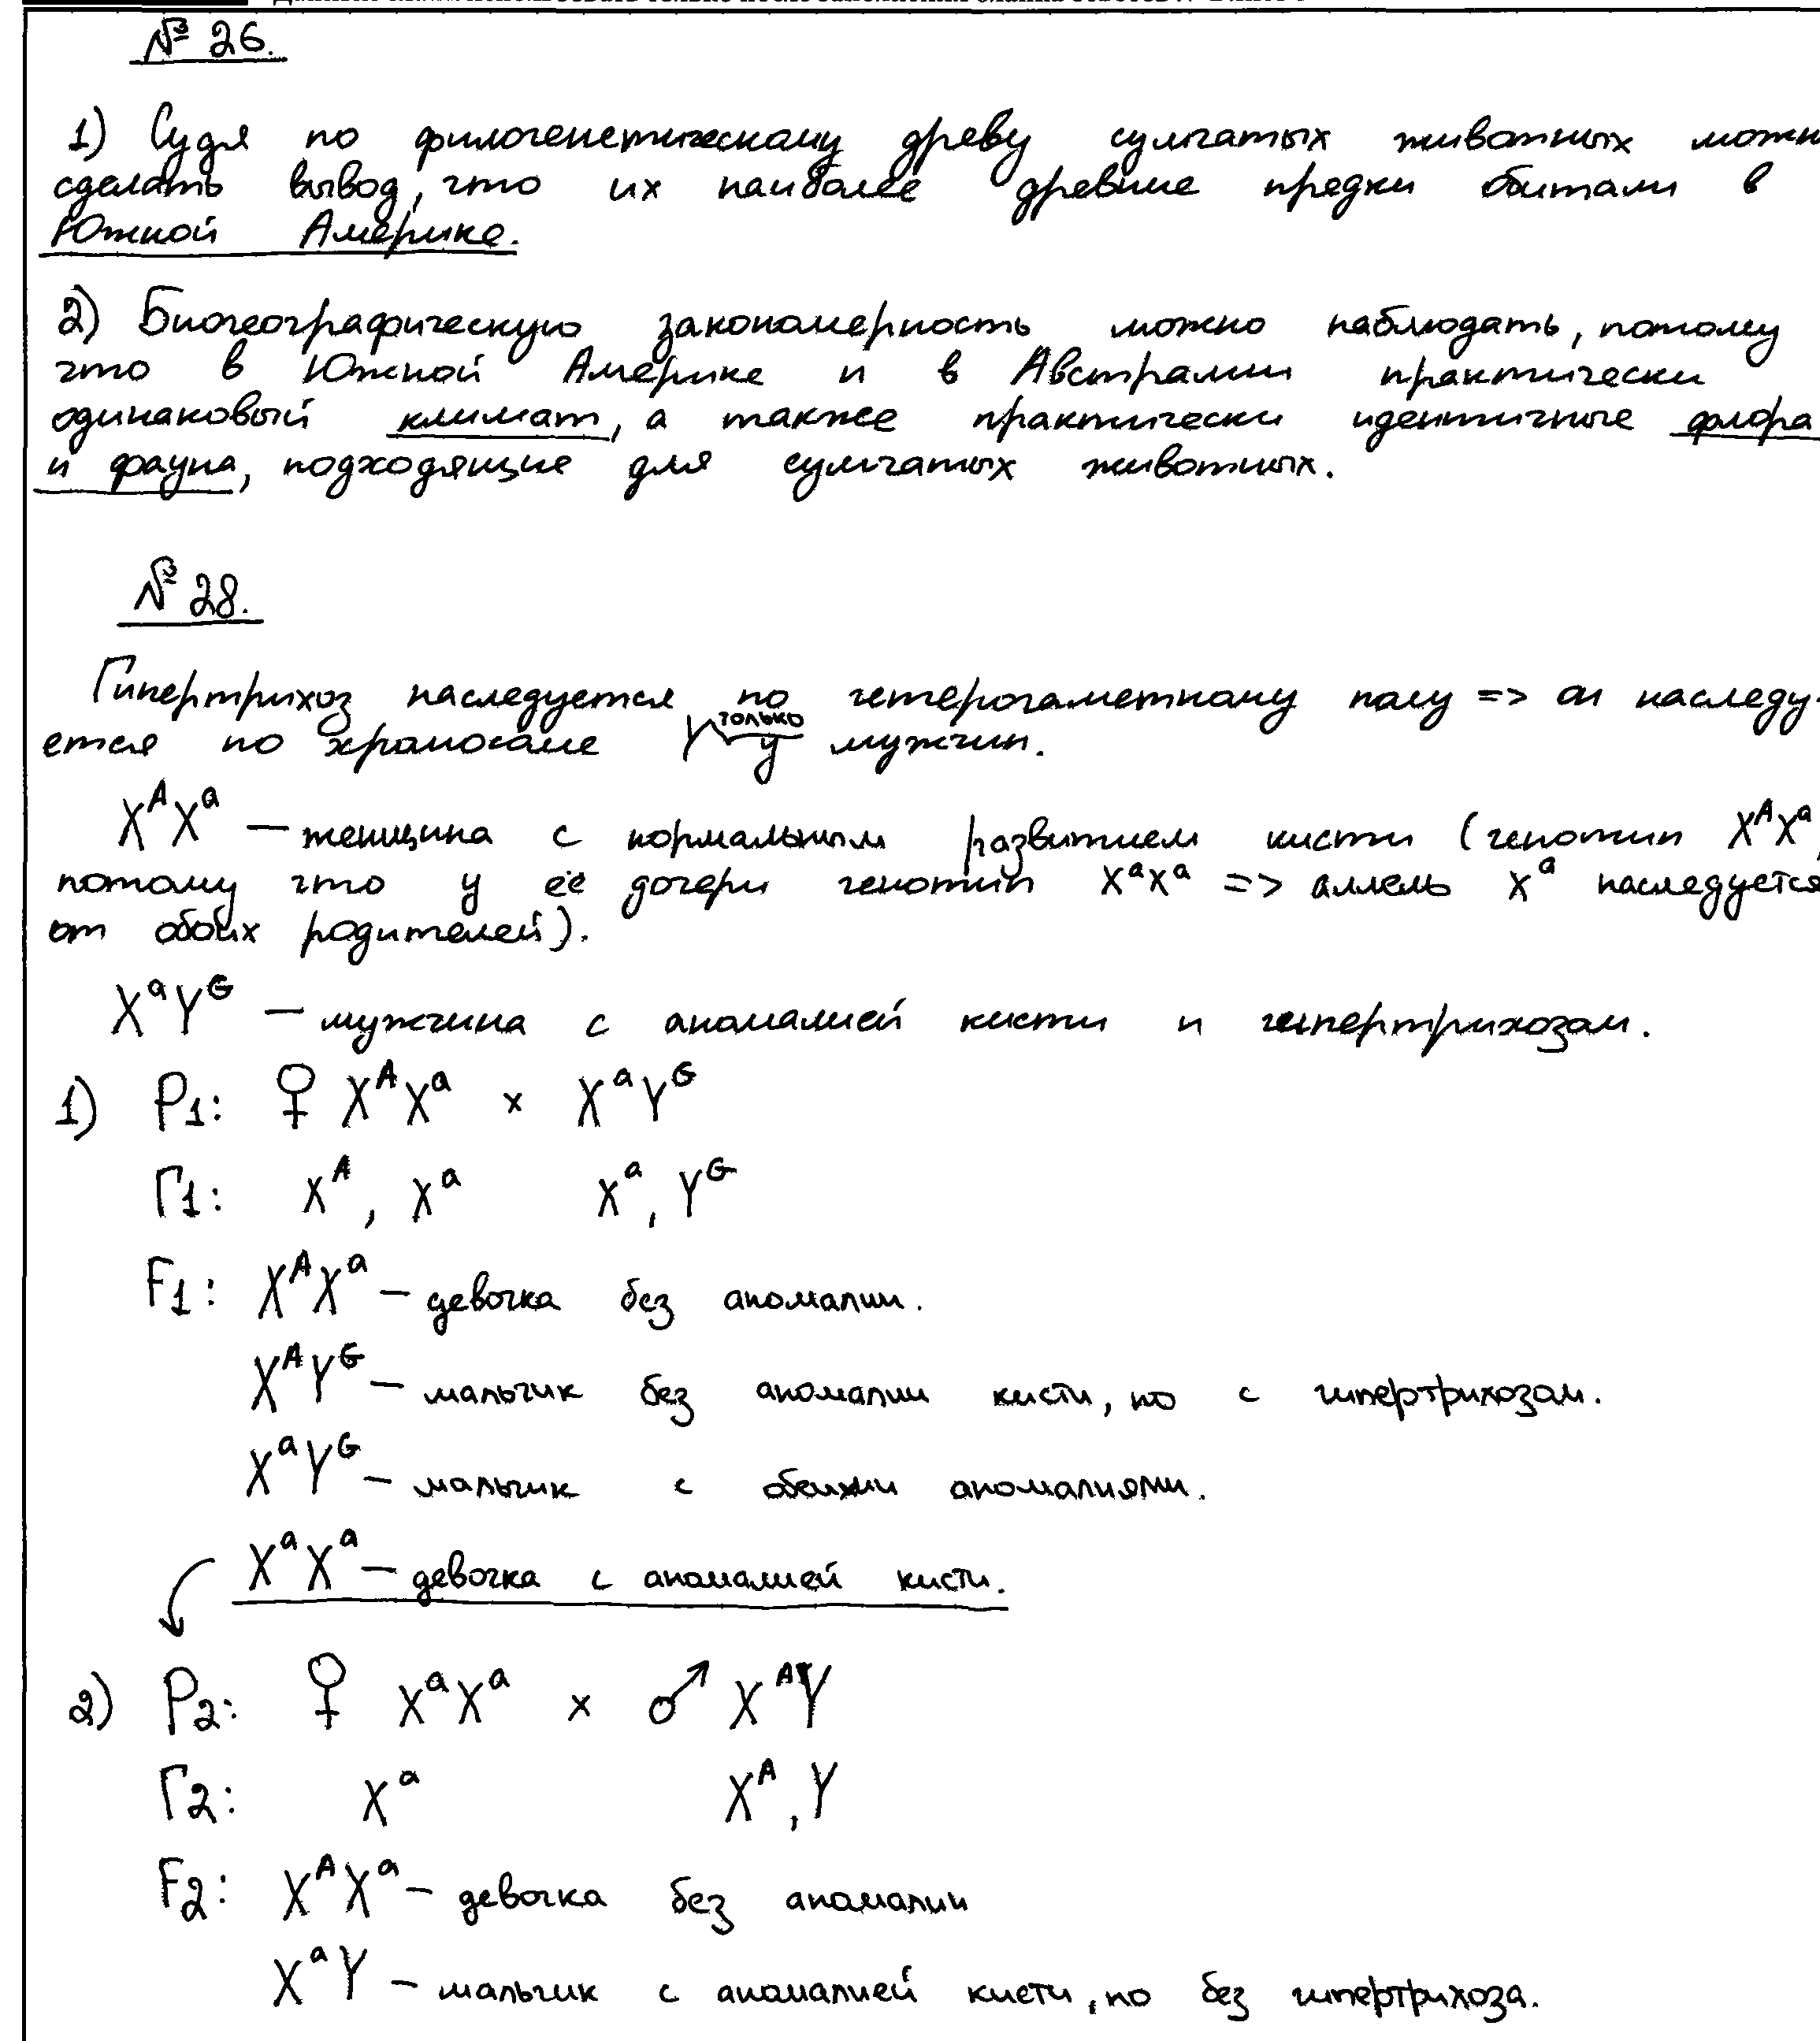 № 26.
1) Судя по филогенетическому древу сумчатых животных можн
сделать вывод, что их наиболее древние предки обитали в
Южной Америке.
2) Биогеографическую закономерность можно наблюдать, потому
что в Южной Америке и в Австралии практически
одинаковый климат, а также практически идентичные флора
и фауна, подходящие для сумчатых животных.
№ 28.
Гипертрихоз наследуется по гетерогаметному полу => он наследу-
ется по хромосоме Y только у мужчин.
XᴬXᵃ — женщина с нормальным развитием кисти (генотип XᴬXᵃ,
потому что у её дочери генотип XᵃXᵃ => аллель Xᵃ наследуется
от обоих родителей).
XᵃYᴳ — мужчина с аномалией кисти и гипертрихозом.
1) P1: ♀ XᴬXᵃ × XᵃYᴳ
Г1: Xᴬ, Xᵃ Xᵃ, Yᴳ
F1: XᴬXᵃ — девочка без аномалии.
XᴬYᴳ — мальчик без аномалии кисти, но с гипертрихозом.
XᵃYᴳ — мальчик с обеими аномалиями.
XᵃXᵃ — девочка с аномалией кисти.
2) P2: ♀ XᵃXᵃ × ♂ XᴬY
Г2: Xᵃ Xᴬ, Y
F2: XᴬXᵃ — девочка без аномалии
XᵃY — мальчик с аномалией кисти, но без гипертрихоза.